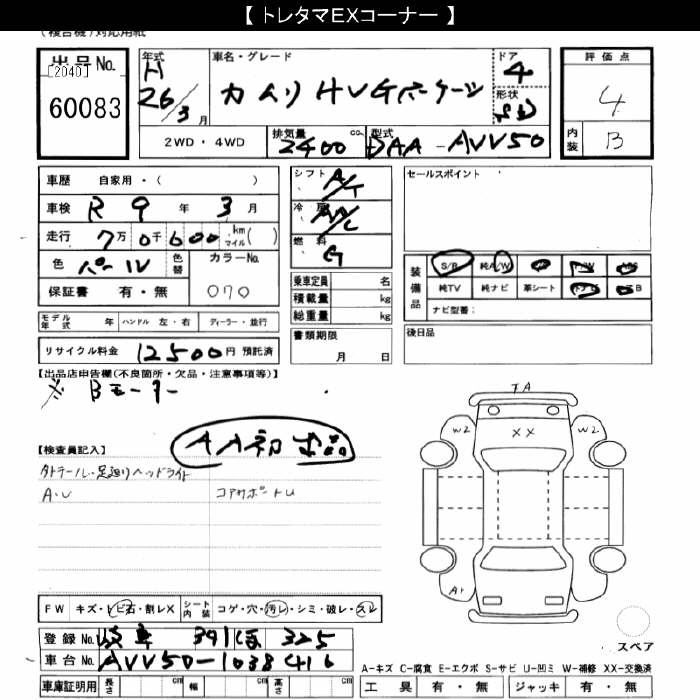 【 トレタマEXコーナー 】
(複合機)対応用紙
出品No. [2040] 60083
年式 H 26/3月
車名・グレード カムリ HV Gパッケージ
ドア 4
形状 SD
評価点 4
内装 B
2WD・4WD
排気量 2400 cc
型式 DAA-AVV50
車歴 自家用・( )
車検 R 9 年 3 月
走行 7万 0千 600 km マイル( )
色 パール 色替 カラーNo. 070
保証書 有・無
シフト A/T
冷房 AA/C
燃料 G
乗車定員 名
積載量 kg
総重量 kg
書類期限 月 日
セールスポイント
装備品 S/R 純A/W
純TV 純ナビ 革シート
ナビ型番:
後日品
モデル年式 年 ハンドル 左・右 ディーラー・並行
リサイクル料金 12500円 預託済
【出品店申告欄(不良箇所・欠品・注意事項等)】
※ Bモーター
AA初出品
【検査員記入】
タトテール・足廻りヘッドライト
A・U コアサポートU
TA
W2 XX W2
A1
FW キズ・トビ石・割レX シート内装 コゲ・穴・汚レ・シミ・破レ・スレ
登録No. 岐阜 391 ほ 325
車台No. AVV50-1038416
車庫証明用 長さ cm 幅 cm 高さ cm
スペア
A-キズ C-腐食 E-エクボ S-サビ U-凹ミ W-補修 XX-交換済
工具 有・無 ジャッキ 有・無